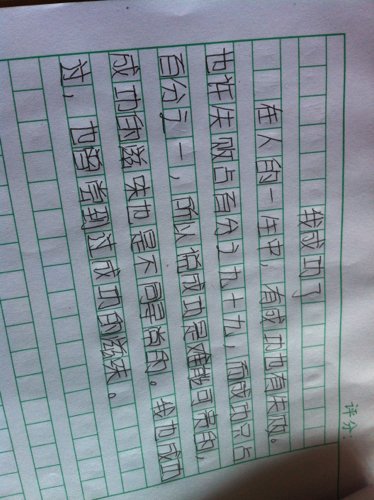 评分:
我成功了
在人的一生中，有成功也有失败。
也许失败占百分之九十九，而成功只占
百分之一，所以说成功是难能可贵的，
成功的滋味也是不同寻常的。我成功
过，也曾尝到过成功的滋味。